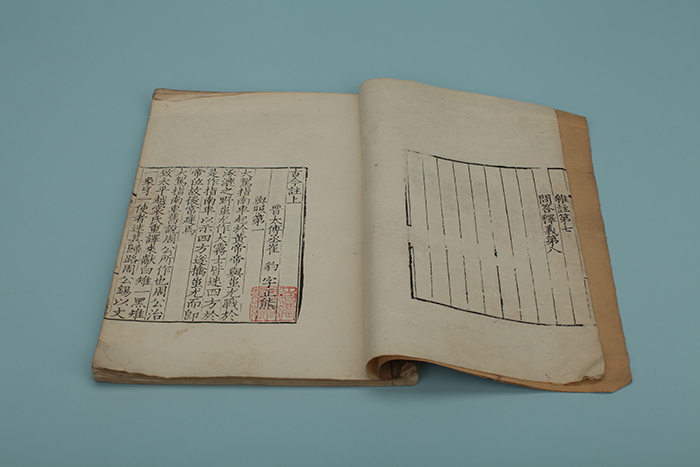 雜註第七
問答釋義第八
古今註上
晉太傅丞崔 豹 字正熊
輿服第一
大駕指南車起於黃帝帝與蚩尤戰於
涿鹿之野蚩尤作大霧士皆迷四方於
是作指南車以示四方遂擒蚩尤而即
帝位故後常建焉
大駕指南車舊說周公所作也周公治
致太平越裳氏重譯來獻白雉一黑雉
象牙一使者迷其歸路周公錫以文